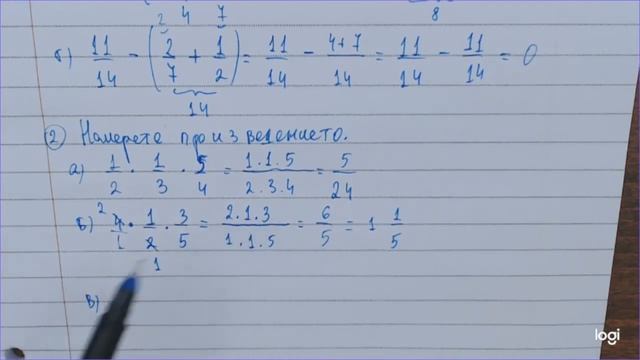 2 4 7
8
б) 11/14 - (2/7 + 1/2) = 11/14 - 4+7/14 = 11/14 - 11/14 = 0
14
2 Намерете произведението.
а) 1/2 · 1/3 · 5/4 = 1.1.5/2.3.4 = 5/24
б) 2 4/1 · 1/2 · 3/5 = 2.1.3/1.1.5 = 6/5 = 1 1/5
1
в)
logi